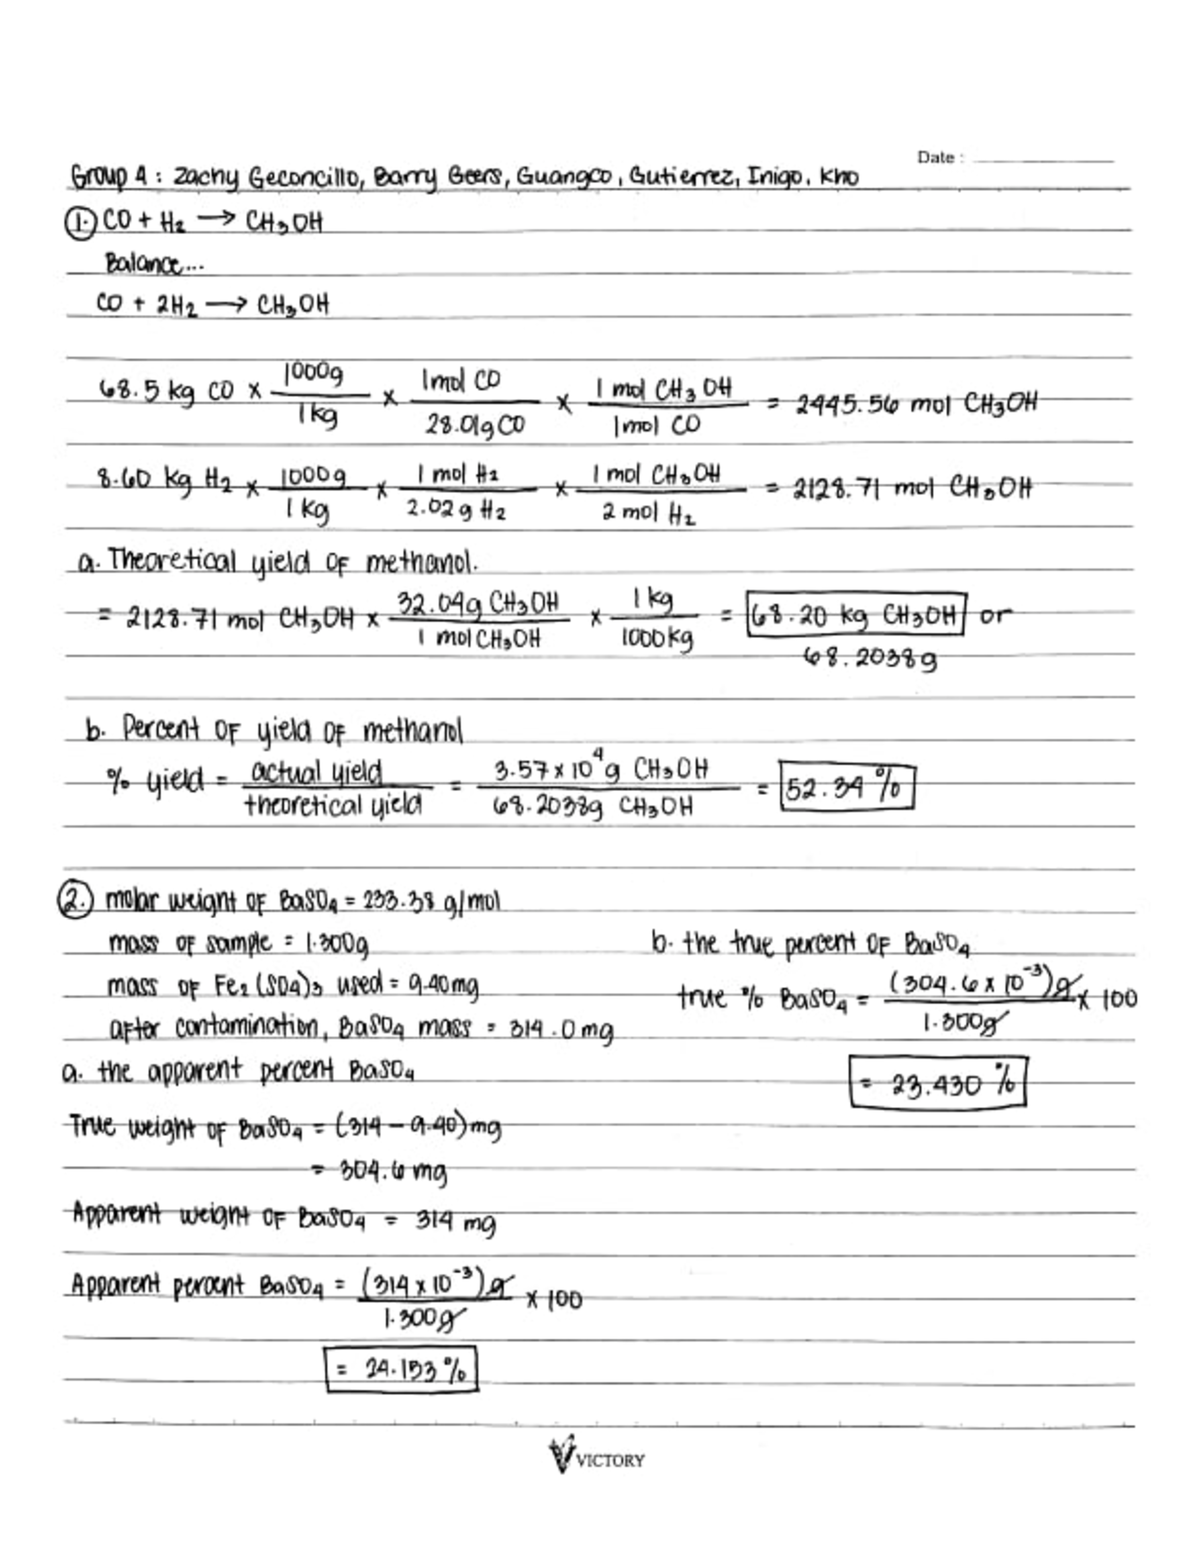 Date :
Group 4 : Zachy Geconcillo, Barry Geers, Guangco, Gutierrez, Inigo, Kho
1. CO + H₂ → CH₃OH
Balance...
CO + 2H₂ → CH₃OH
68.5 kg CO × 1000g / 1kg × 1mol CO / 28.01g CO × 1 mol CH₃OH / 1mol CO = 2445.56 mol CH₃OH
8.60 kg H₂ × 1000g / 1kg × 1 mol H₂ / 2.02g H₂ × 1 mol CH₃OH / 2 mol H₂ = 2128.71 mol CH₃OH
a. Theoretical yield of methanol.
= 2128.71 mol CH₃OH × 32.04g CH₃OH / 1 mol CH₃OH × 1kg / 1000kg = 68.20 kg CH₃OH or
68.2038g
b. Percent of yield of methanol
% yield = actual yield / theoretical yield = 3.57 × 10⁴g CH₃OH / 68.2038g CH₃OH = 52.34 %
2. molar weight of BaSO₄ = 233.38 g/mol
mass of sample = 1.300g
mass of Fe₂(SO₄)₃ used = 9.40mg
after contamination, BaSO₄ mass = 314.0mg
a. the apparent percent BaSO₄
True weight of BaSO₄ = (314 - 9.40)mg
= 304.6 mg
Apparent weight of BaSO₄ = 314 mg
Apparent percent BaSO₄ = (314 × 10⁻³)g / 1.300g × 100
= 24.153 %
b. the true percent of BaSO₄
true % BaSO₄ = (304.6 × 10⁻³)g / 1.300g × 100
= 23.430 %
VICTORY